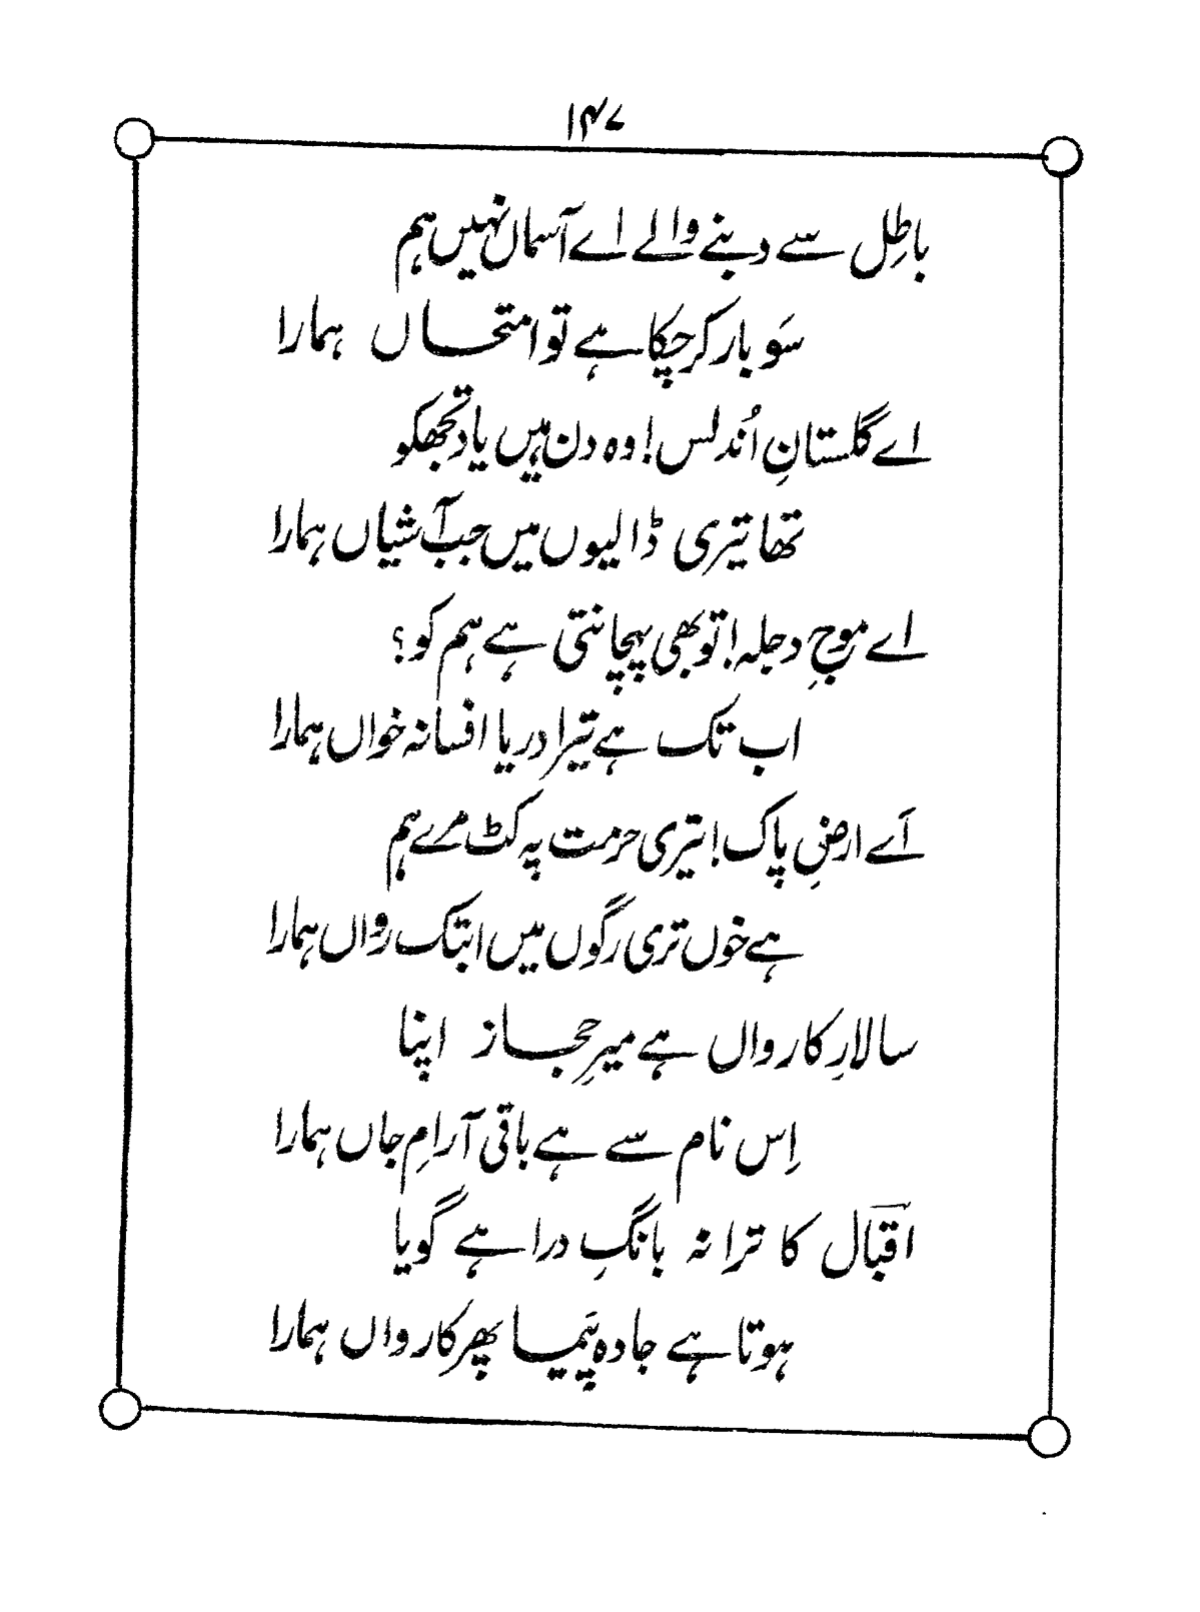 ۱۴۷
باطِل سے دبنے والے اے آسماں نہیں ہم
سَو بار کر چکا ہے تو امتحاں ہمارا
اے گلستانِ اُندلس! وہ دن ہیں یاد تجھکو
تھا تیری ڈالیوں میں جب آشیاں ہمارا
اے موجِ دجلہ! تو بھی پہچانتی ہے ہم کو؟
اب تک ہے تیرا دریا افسانہ خواں ہمارا
اَے ارضِ پاک! تیری حرمت پہ کٹ مرے ہم
ہے خوں تری رگوں میں ابتک رواں ہمارا
سالارِ کارواں ہے میرِ حجاز اپنا
اِس نام سے ہے باقی آرامِ جاں ہمارا
اقبال کا ترانہ بانگِ درا ہے گویا
ہوتا ہے جادہ پَیما پھر کارواں ہمارا